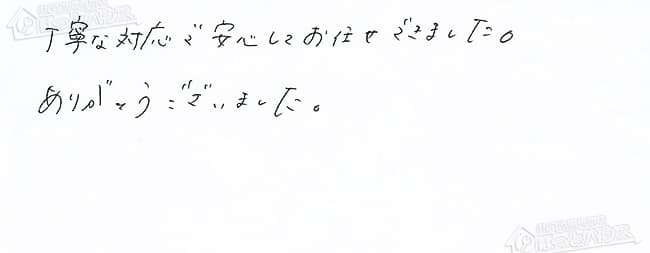 丁寧な対応で安心してお任せできました。
ありがとうございました。